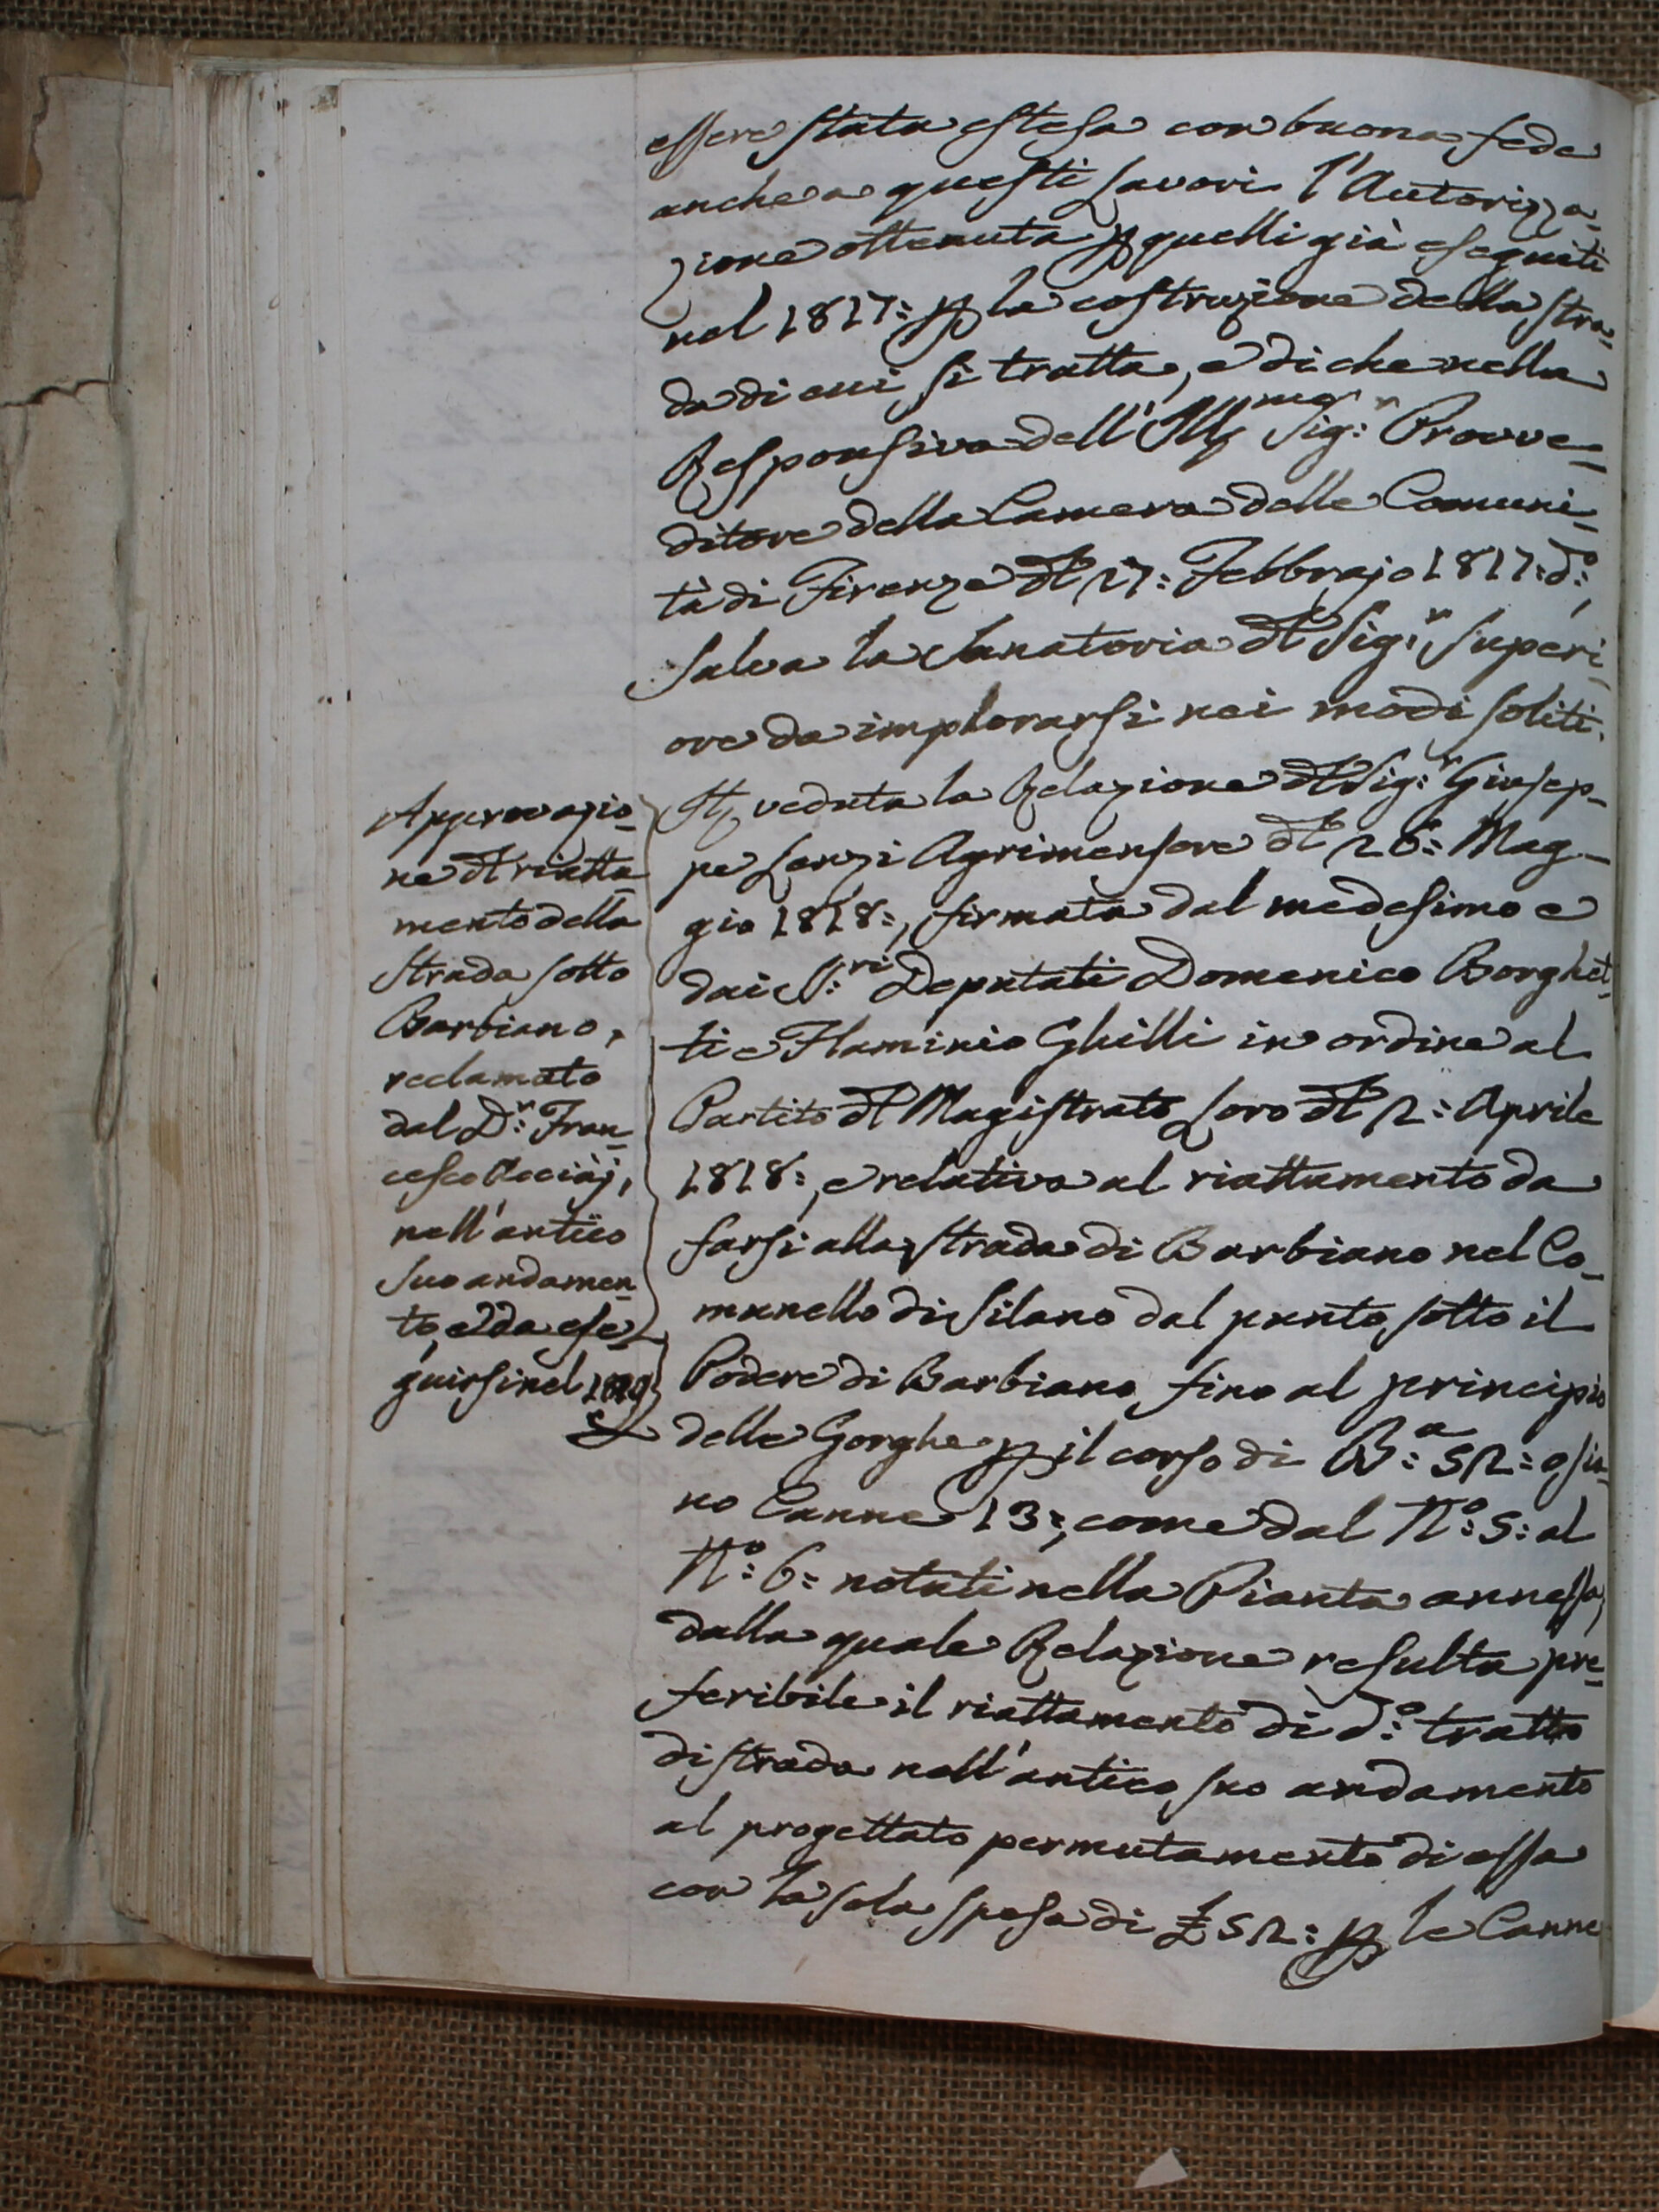 essere stata estesa con buona fede
anche a questi Lavori l'Autorizza-
zione ottenuta p quelli già eseguiti
nel 1817: p la costruzione della stra-
da di cui si tratta, e di che nella
Responsiva dell' Ill.mo Sig:r Provve-
ditore della Camera delle Comuni-
tà di Firenze dl 17: Febbrajo 1817: d:o,
salva la Sanatoria dl Sig:r Superi-
ore da implorarsi nei modi soliti.
Approvazio-
ne dl riatta-
mento della
Strada sotto
Barbiano,
reclamato
dal D:r Fran-
cesco Acciaj,
nell'antico
suo andamen-
to, e da ese-
guirsi nel
It veduta la Relazione dl Sig:r Giusep-
pe Lenzi Agrimensore dl 26: Mag-
gio 1818:, firmata dal medesimo e
dai S:ri Deputati Domenico Borghet-
ti e Flaminio Ghilli in ordine al
Partito dl Magistrato Loro dl 2: Aprile
1818:, e relativa al riattamento da
farsi alla strada di Barbiano nel Co-
munello di Silano dal punto sotto il
Podere di Barbiano fino al principio
delle Gorghe p il corso di B:a 52: o sia-
no Canne 13:, come dal N:o 5: al
N:o 6: notati nella Pianta annessa,
dalla quale Relazione resulta pre-
feribile il riattamento di d:o tratto
di strada nell'antico suo andamento
al progettato permutamento di essa
con la sola spesa di £ 52: p le Canne